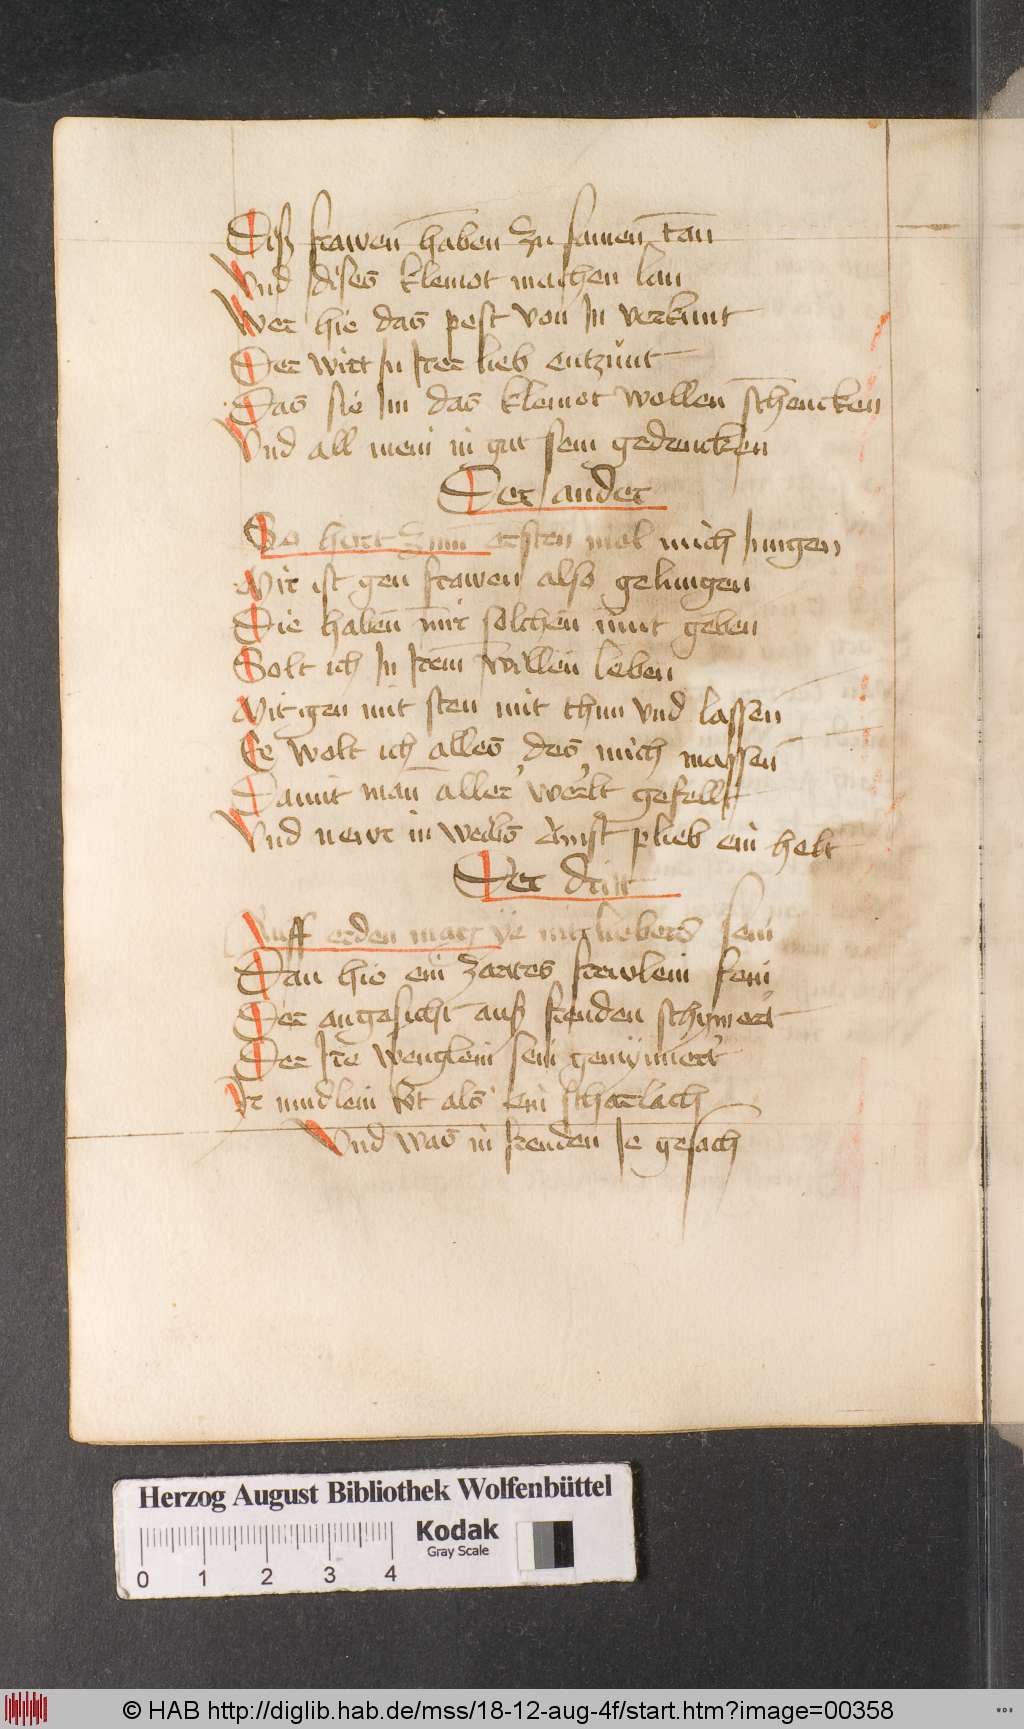 Diß frawen haben zu samen tan
Vnd dises kleinot machen lan
Wer hie das pest von In verkunt
Der wirt In Irer lieb entzunt
Das sie Im das kleinot wollen schencken
Vnd all mein in gut sein gedencken
Der ander
So hort zum ersten mol mich Jungen
Mir ist gen frawen also gelungen
Die haben mir solchen mut geben
Solt ich In Irem willen leben
Mit gen mit sten mit thun vnd lassen
Ee wolt ich alles des mich massen
Damit man aller werlt gefellt
Vnd newr in weibs dinst plieb ein helt
Der drit
Auff erden mag ye nit liebers sein
Dan hie ein zartes frewlein fein
Der angesicht auß freuden schymert
Der Ire wenglein sein
Ir mudlein rot als ein scharlach
Vnd was in freuden Ie gesach
Herzog August Bibliothek Wolfenbüttel
Kodak
Gray Scale
0 1 2 3 4
© HAB http://diglib.hab.de/mss/18-12-aug-4f/start.htm?image=00358